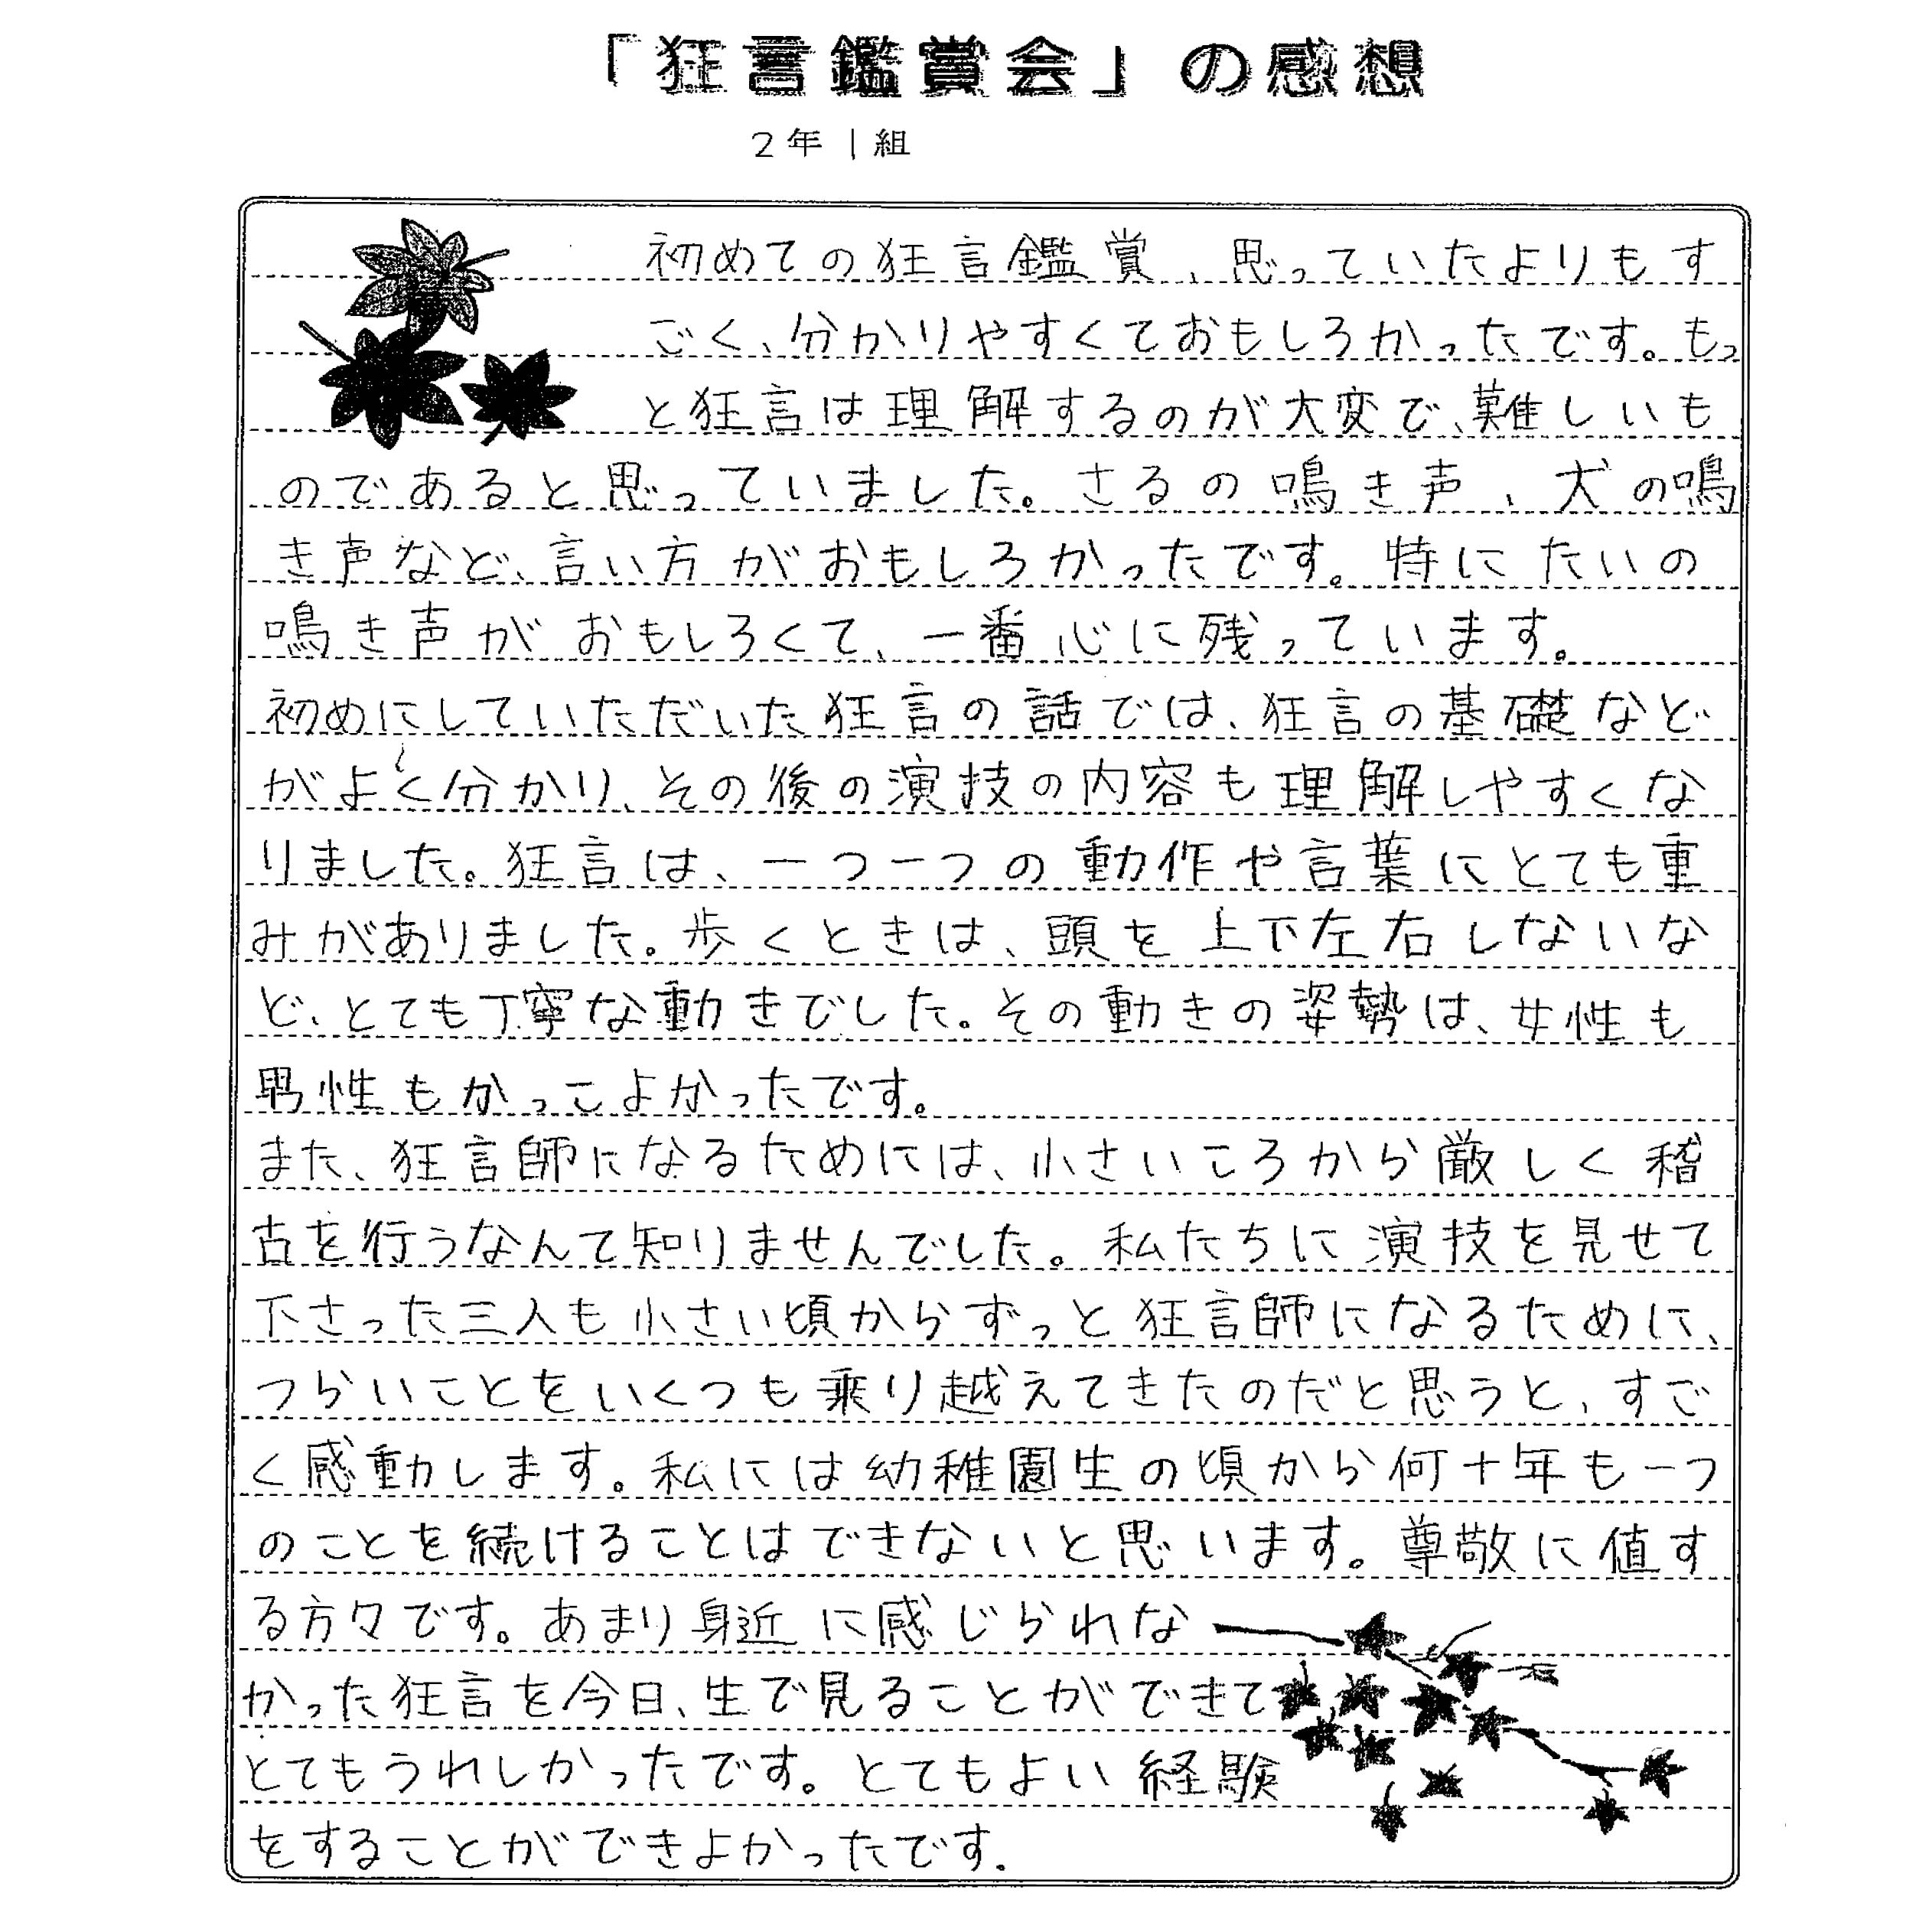 「狂言鑑賞会」の感想
2年1組
初めての狂言鑑賞、思っていたよりもす
ごく、分かりやすくておもしろかったです。もっ
と狂言は理解するのが大変で、難しいも
のであると思っていました。さるの鳴き声、犬の鳴
き声など、言い方がおもしろかったです。特にたいの
鳴き声がおもしろくて、一番心に残っています。
初めにしていただいた狂言の話では、狂言の基礎など
がよく分かり、その後の演技の内容も理解しやすくな
りました。狂言は、一つ一つの動作や言葉にとても重
みがありました。歩くときは、頭を上下左右しないな
ど、とても丁寧な動きでした。その動きの姿勢は、女性も
男性もかっこよかったです。
また、狂言師になるためには、小さいころから厳しく稽
古を行うなんて知りませんでした。私たちに演技を見せて
下さった三人も小さい頃からずっと狂言師になるために、
つらいことをいくつも乗り越えてきたのだと思うと、すご
く感動します。私には幼稚園生の頃から何十年も一つ
のことを続けることはできないと思います。尊敬に値す
る方々です。あまり身近に感じられな
かった狂言を今日、生で見ることができて
とてもうれしかったです。とてもよい経験
をすることができよかったです.